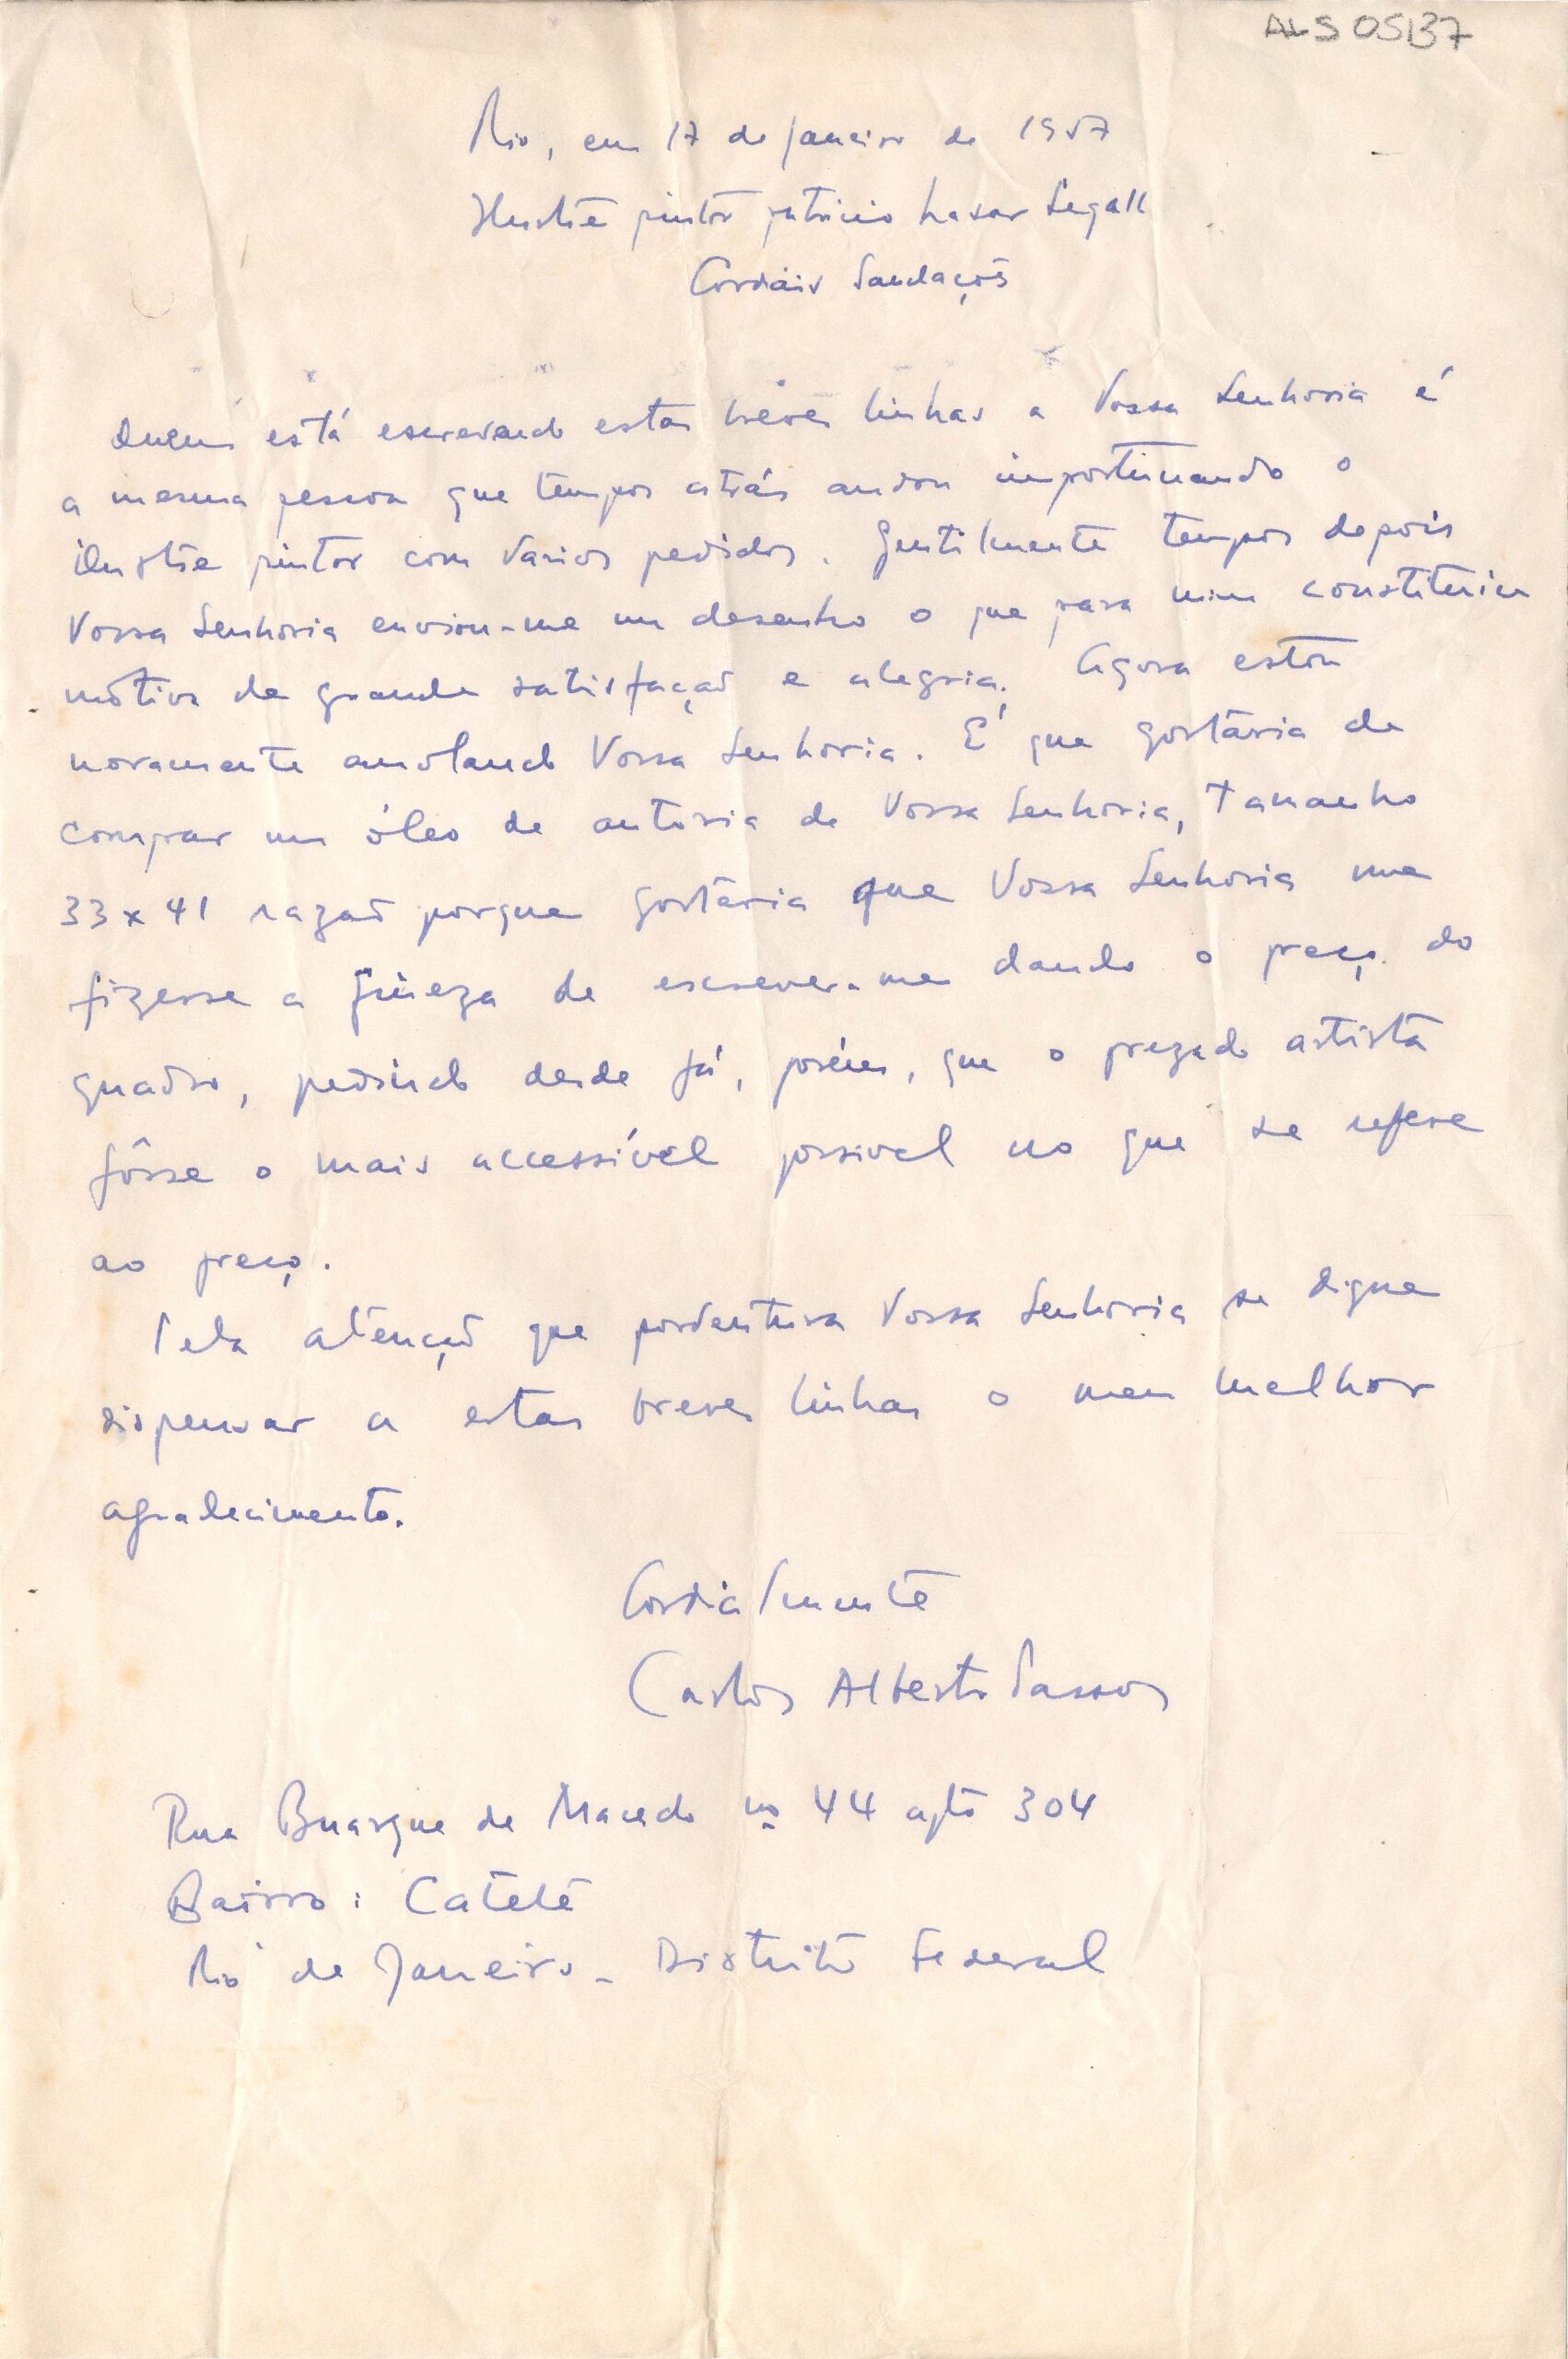 ALS 05137
Rio, em 17 de janeiro de 1957
Ilustre pintor patricio Lasar Segall
Cordiais Saudações
Quem está escrevendo estas breves linhas a Vossa Senhoria é
a mesma pessoa que tempos atrás andou importunando o
ilustre pintor com varios pedidos. Gentilmente tempos depois
Vossa Senhoria enviou-me um desenho o que para mim constituiu
motivo de grande satisfação e alegria. Agora estou
novamente amolando Vossa Senhoria. É que gostaria de
comprar um óleo de autoria de Vossa Senhoria, tamanho
33 x 41 razão porque gostaria que Vossa Senhoria me
fizesse a fineza de escrever-me dando o preço do
quadro, pedindo desde já, porém, que o prezado artista
fôsse o mais accessível possivel no que se refere
ao preço.
Pela atenção que porventura Vossa Senhoria se digne
dispensar a estas breves linhas o meu melhor
agradecimento.
Cordialmente
Carlos Alberto Passos
Rua Buarque de Macedo nº 44 apto 304
Bairro: Catete
Rio de Janeiro - Distrito Federal